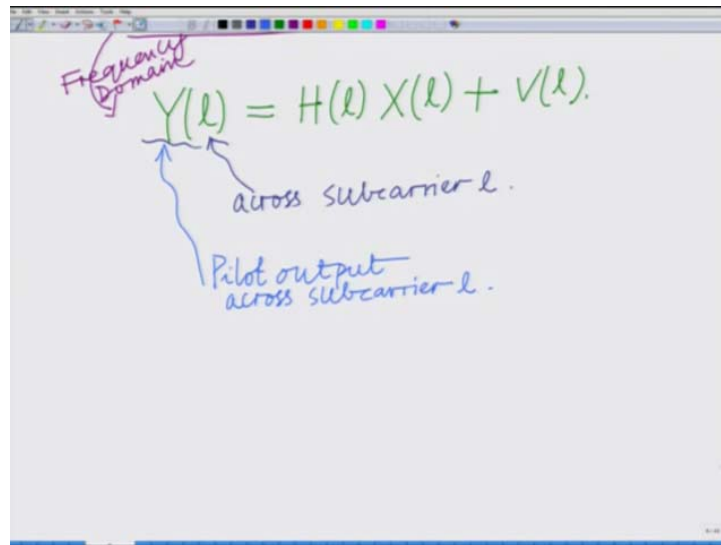 Frequency
Domain
Y(l) = H(l) X(l) + V(l).
across subcarrier l.
Pilot output
across subcarrier l.